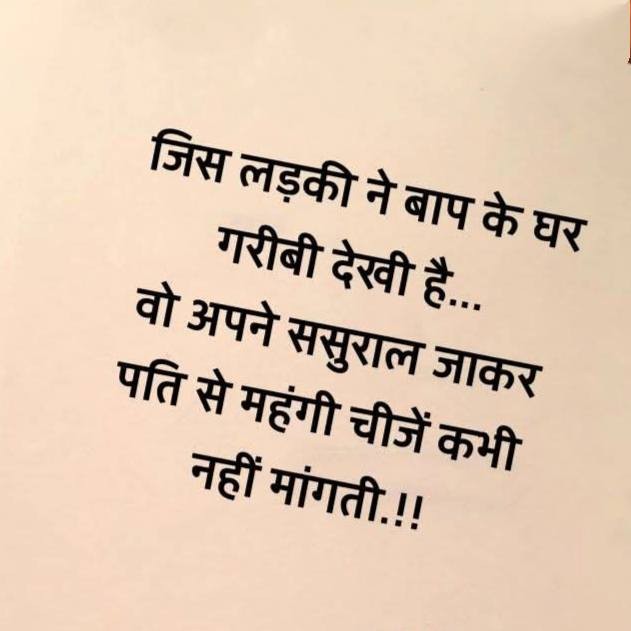 जिस लड़की ने बाप के घर
गरीबी देखी है...
वो अपने ससुराल जाकर
पति से महंगी चीजें कभी
नहीं मांगती.!!